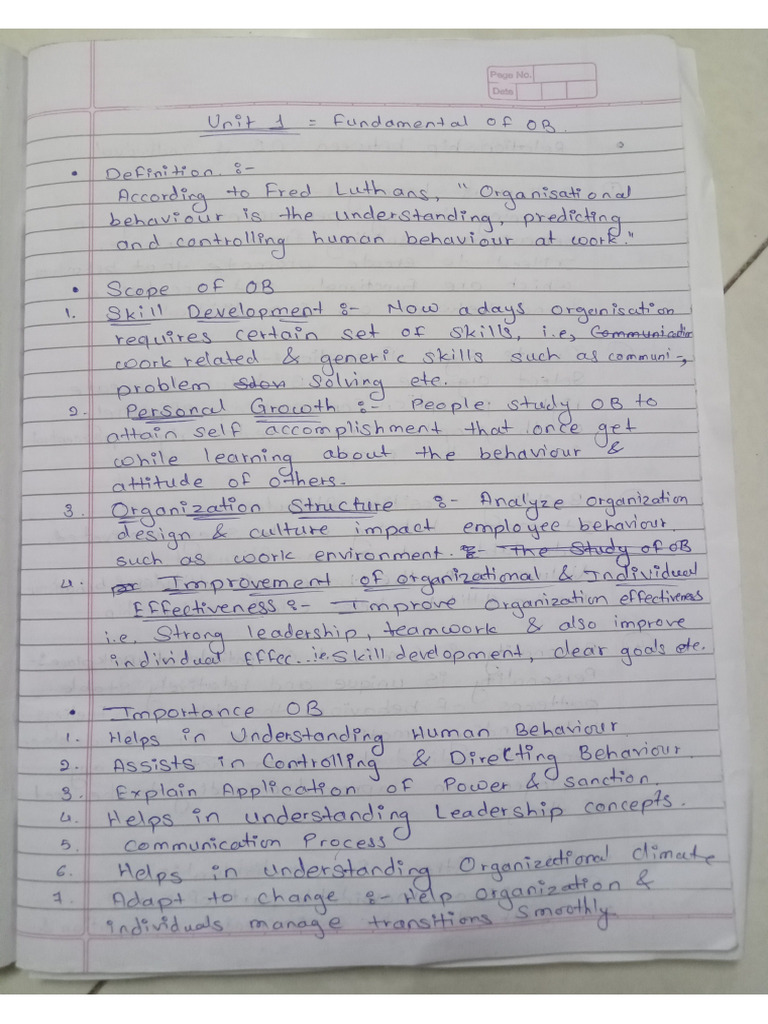 Page No.
Date
Unit 1 = Fundamental of OB.
• Definition :-
According to Fred Luthans, "Organisational
behaviour is the understanding, predicting
and controlling human behaviour at work."
• Scope of OB
1. Skill Development :- Now a days organisation
requires certain set of skills, i.e, Communication
work related & generic skills such as communi-,
problem solving etc.
2. Personal Growth :- People study OB to
attain self accomplishment that once get
while learning about the behaviour &
attitude of others.
3. Organization Structure :- Analyze organization
design & culture impact employee behaviour.
such as work environment. :- The Study of OB
4. Improvement of organizational & Individual
Effectiveness :- Improve Organization effectiveness
i.e. Strong leadership, teamwork & also improve
individual Effec.. i.e. Skill development, clear goals etc.
• Importance OB
1. Helps in Understanding Human Behaviour
2. Assists in Controlling & Directing Behaviour.
3. Explain Application of Power & Sanction.
4. Helps in understanding Leadership concepts.
5. Communication Process
6. Helps in understanding Organizational climate
7. Adapt to change :- Help organization &
individuals manage transitions smoothly